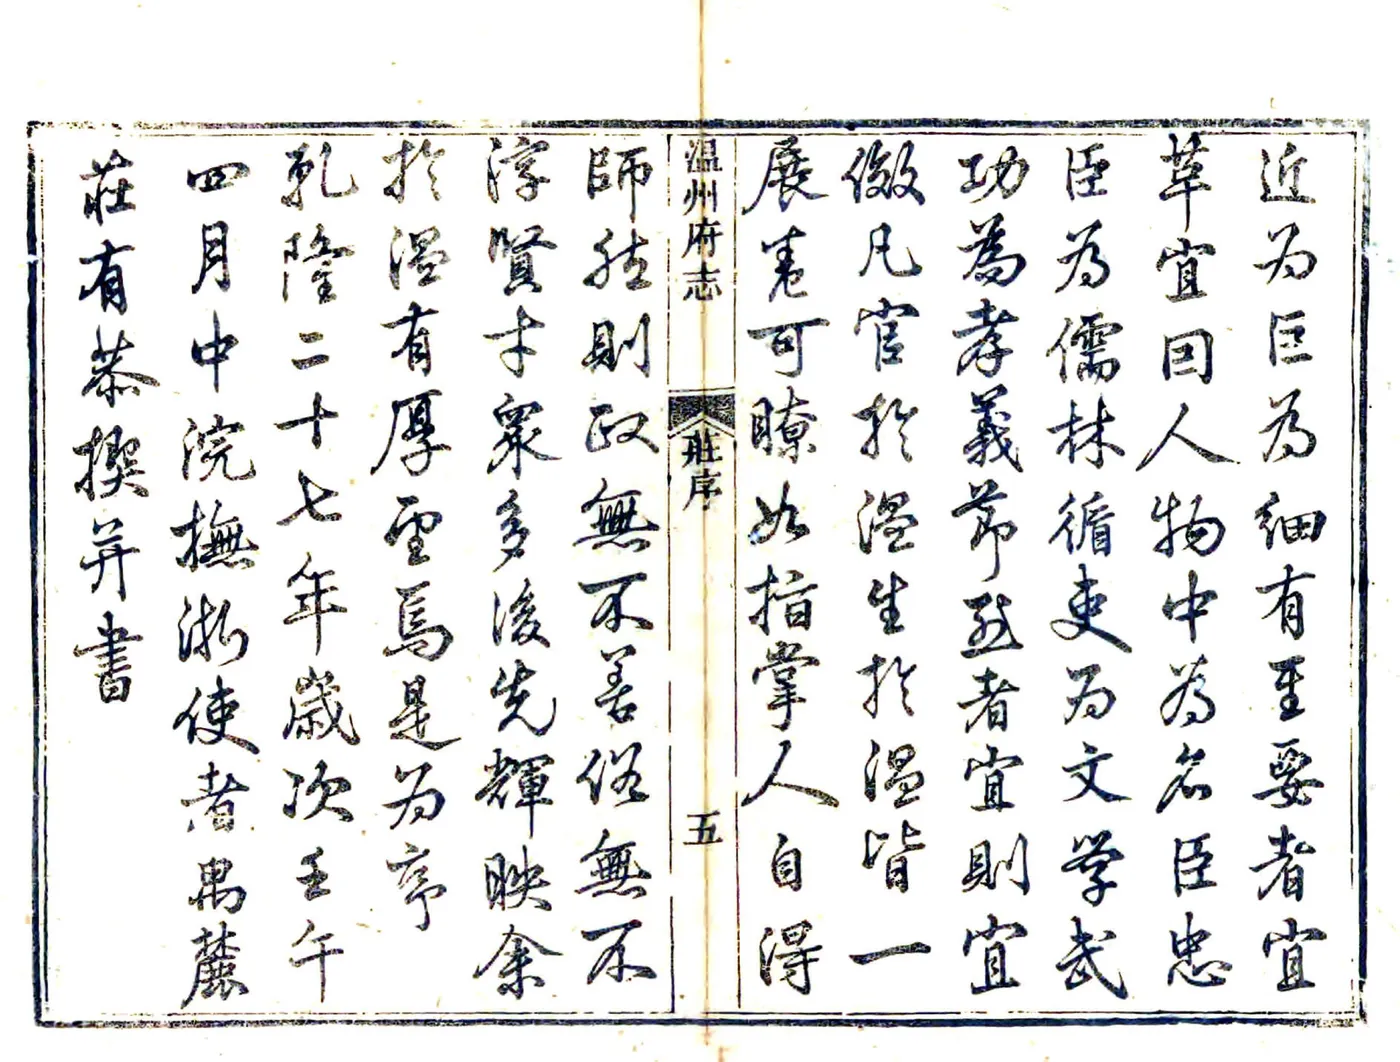 近為巨為細有至要者宜
革宜因人物中為名臣忠
臣為儒林循吏為文學武
功為孝義節烈者宜則宜
倣凡官於温生於温皆一
展卷可瞭如指掌人自得
温州府志
莊序
五
師然則政無不善俗無不
淳賢才衆多後先輝映余
於温有厚望焉是為序
乾隆二十七年歲次壬午
四月中浣撫浙使者禺麓
莊有恭撰并書